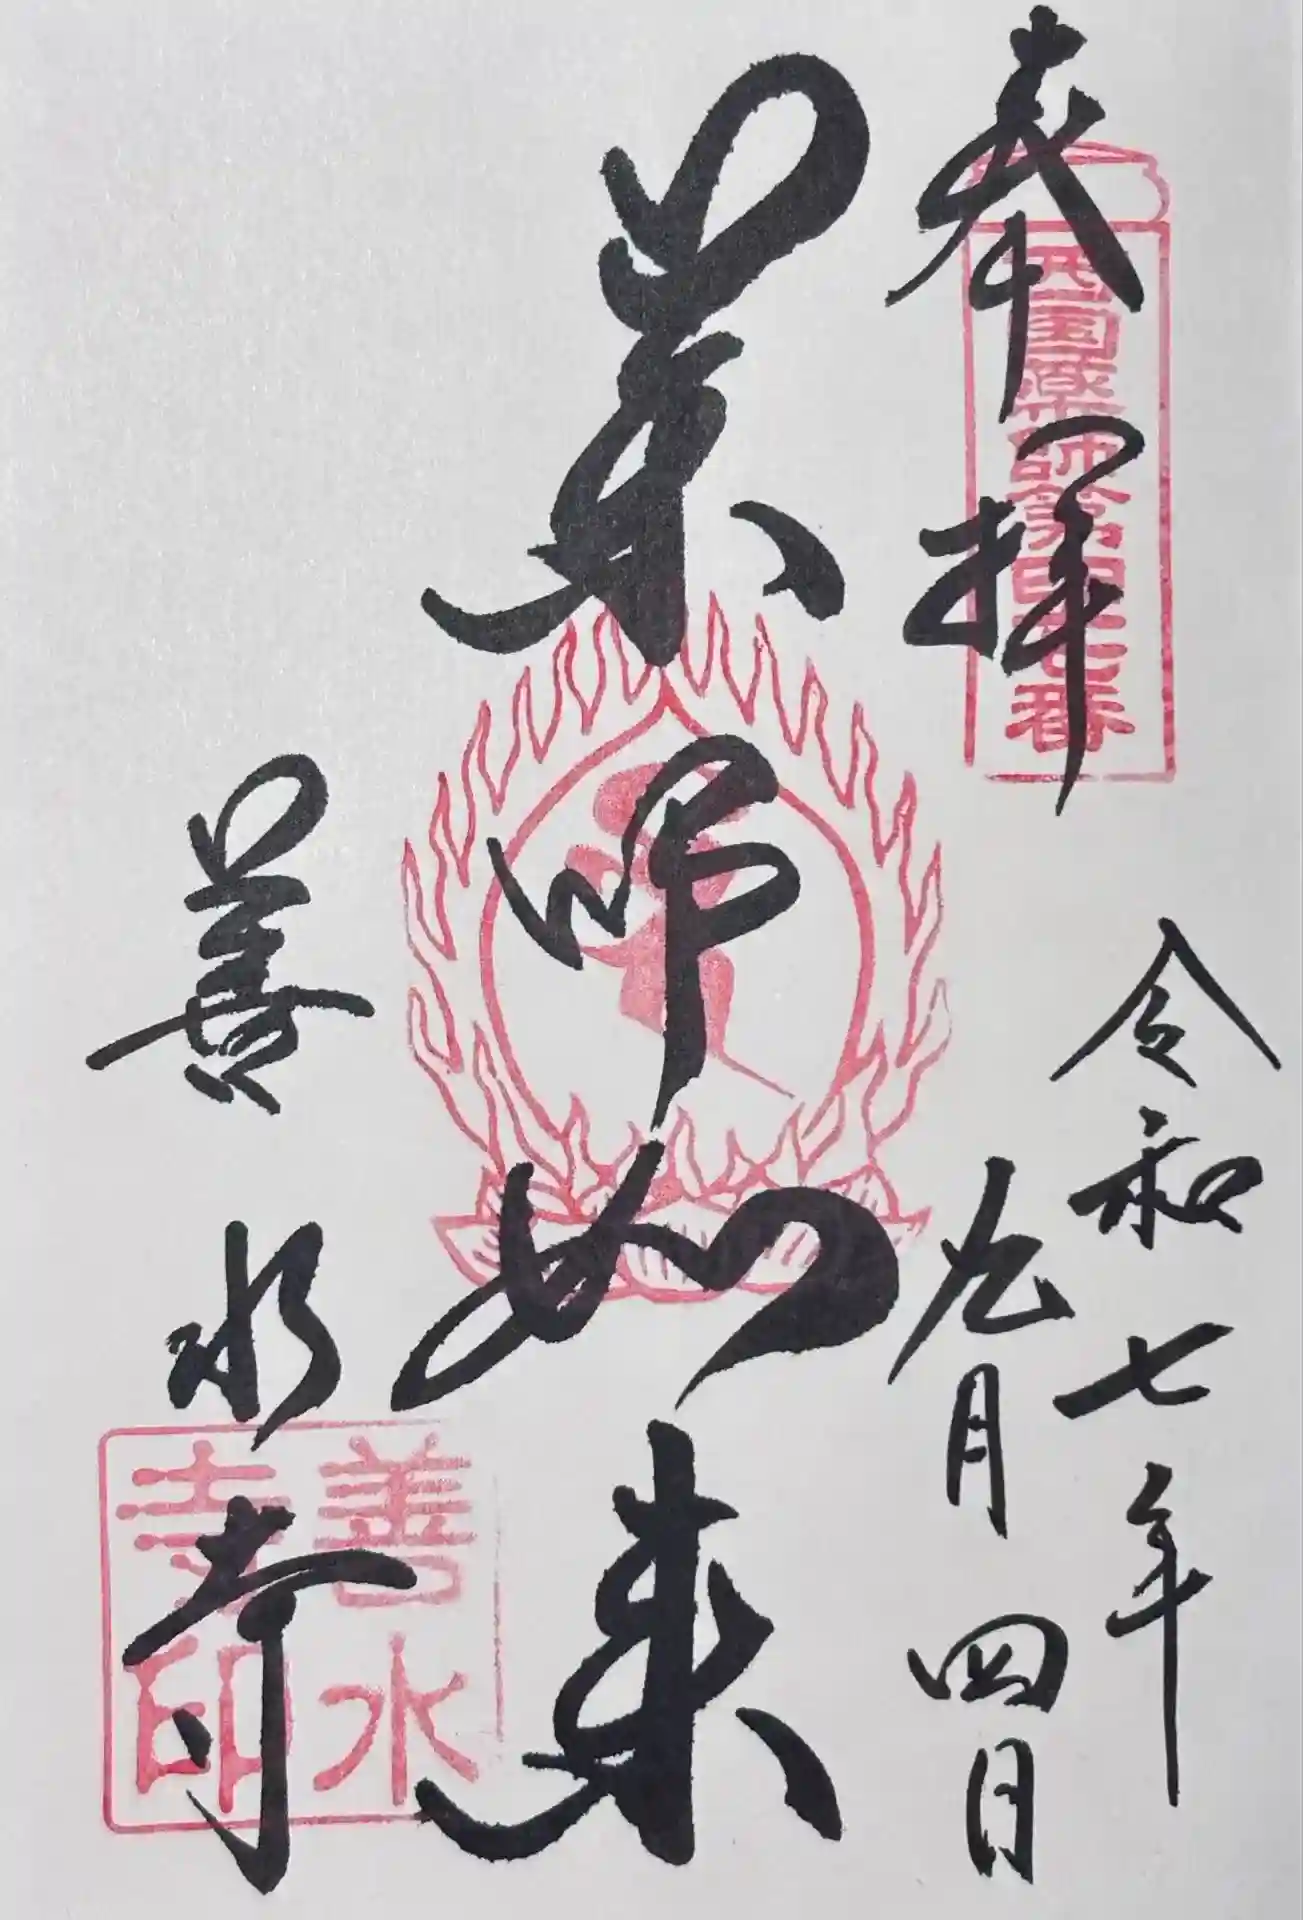 奉拝
西国薬師第四十七番
令和七年
九月四日
薬師如来
善水寺
善水
寺印